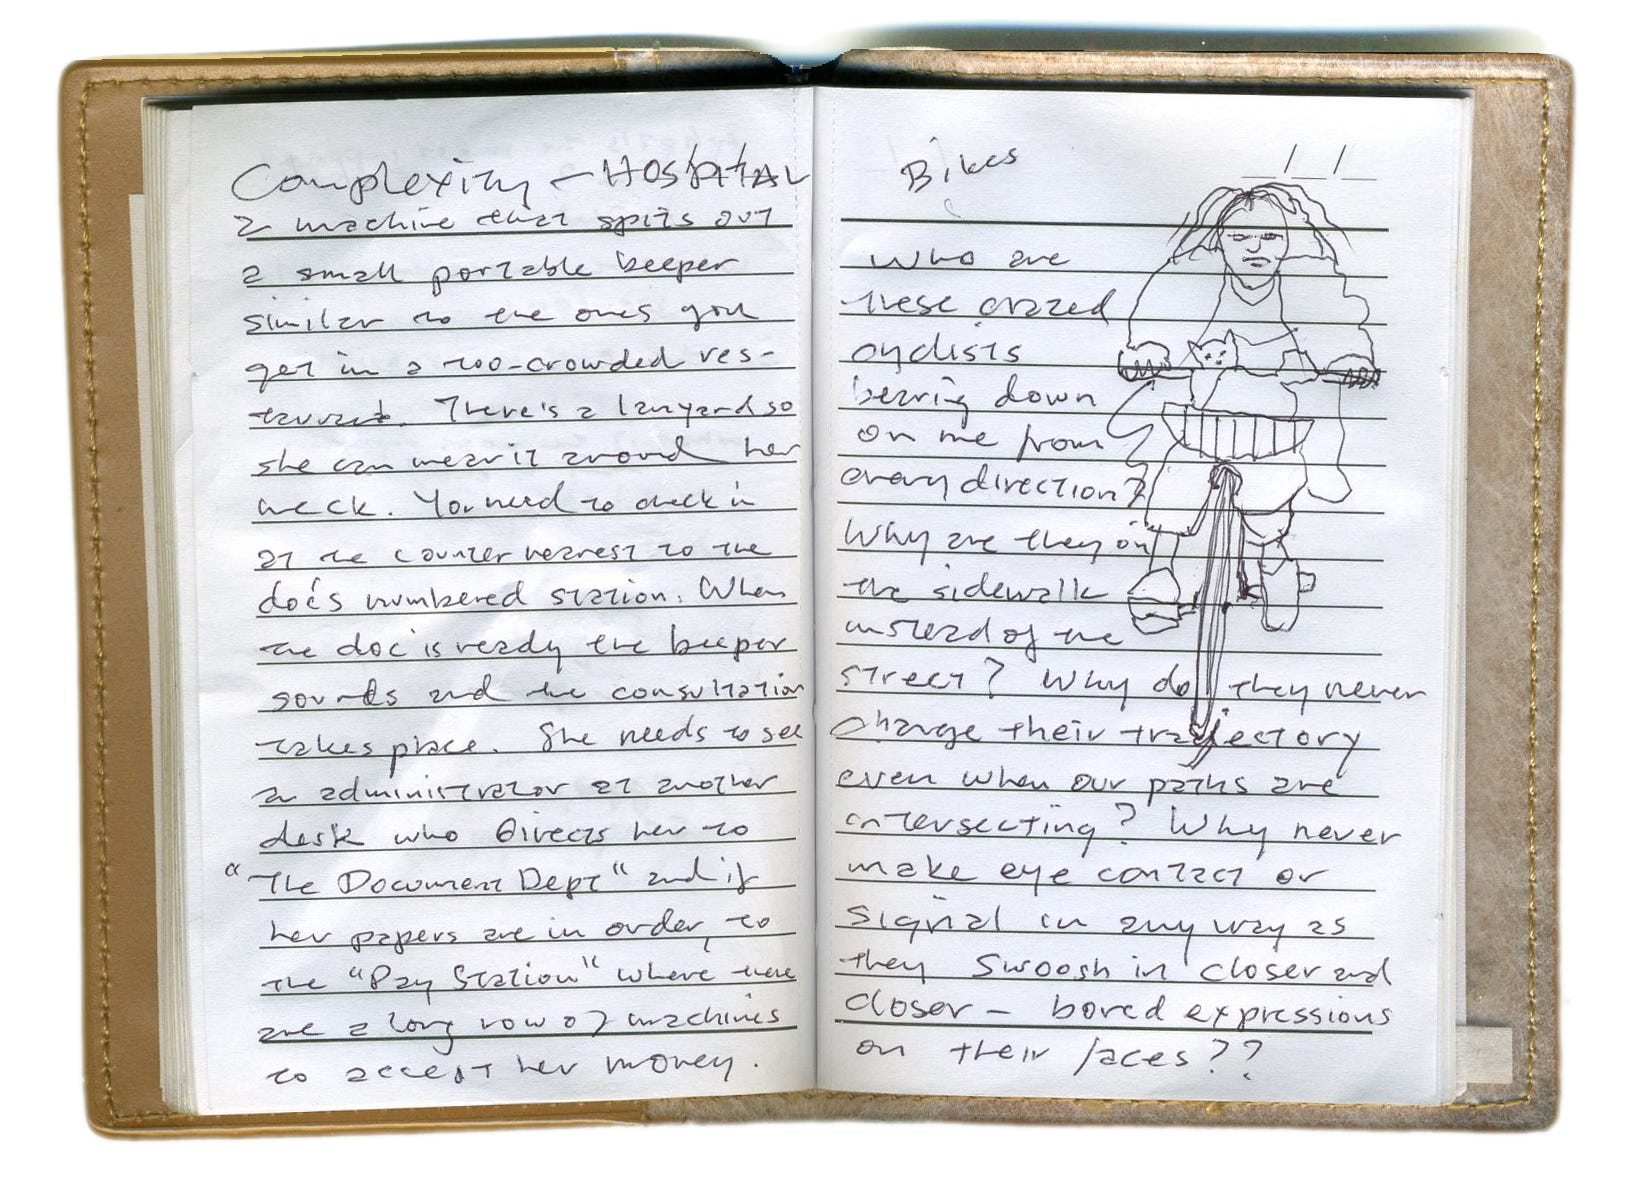 Complexity – HOSPITAL
a machine that spits out
a small portable beeper
similar to the ones you
get in a too-crowded res-
taurant. There's a lanyard so
she can wear it around her
neck. You need to check in
at the counter nearest to the
doc's numbered station. When
the doc is ready the beeper
sounds and the consultation
takes place. She needs to see
an administrator at another
desk who directs her to
"The Document Dept" and if
her papers are in order, to
the "Pay Station" where there
are a long row of machines
to accept her money.
Bikes
__/__/__
Who are
these crazed
cyclists
bearing down
on me from
every direction?
Why are they on
the sidewalk
instead of the
street? Why do they never
change their trajectory
even when our paths are
intersecting? Why never
make eye contact or
signal in any way as
they swoosh in closer and
closer – bored expressions
on their faces??